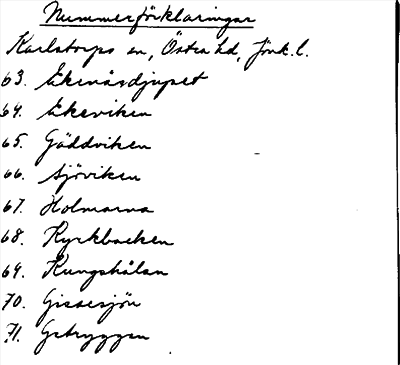 Nummerförklaringar
Karlstorps sn, Östra hd, Jönk. l.
63. Ekenäsdjupet
64. Ekeviken
65. Gäddviken
66. Sjöviken
67. Holmarna
68. Kyrkbacken
69. Kungshålan
70. Gissesjön
71. Getryggen